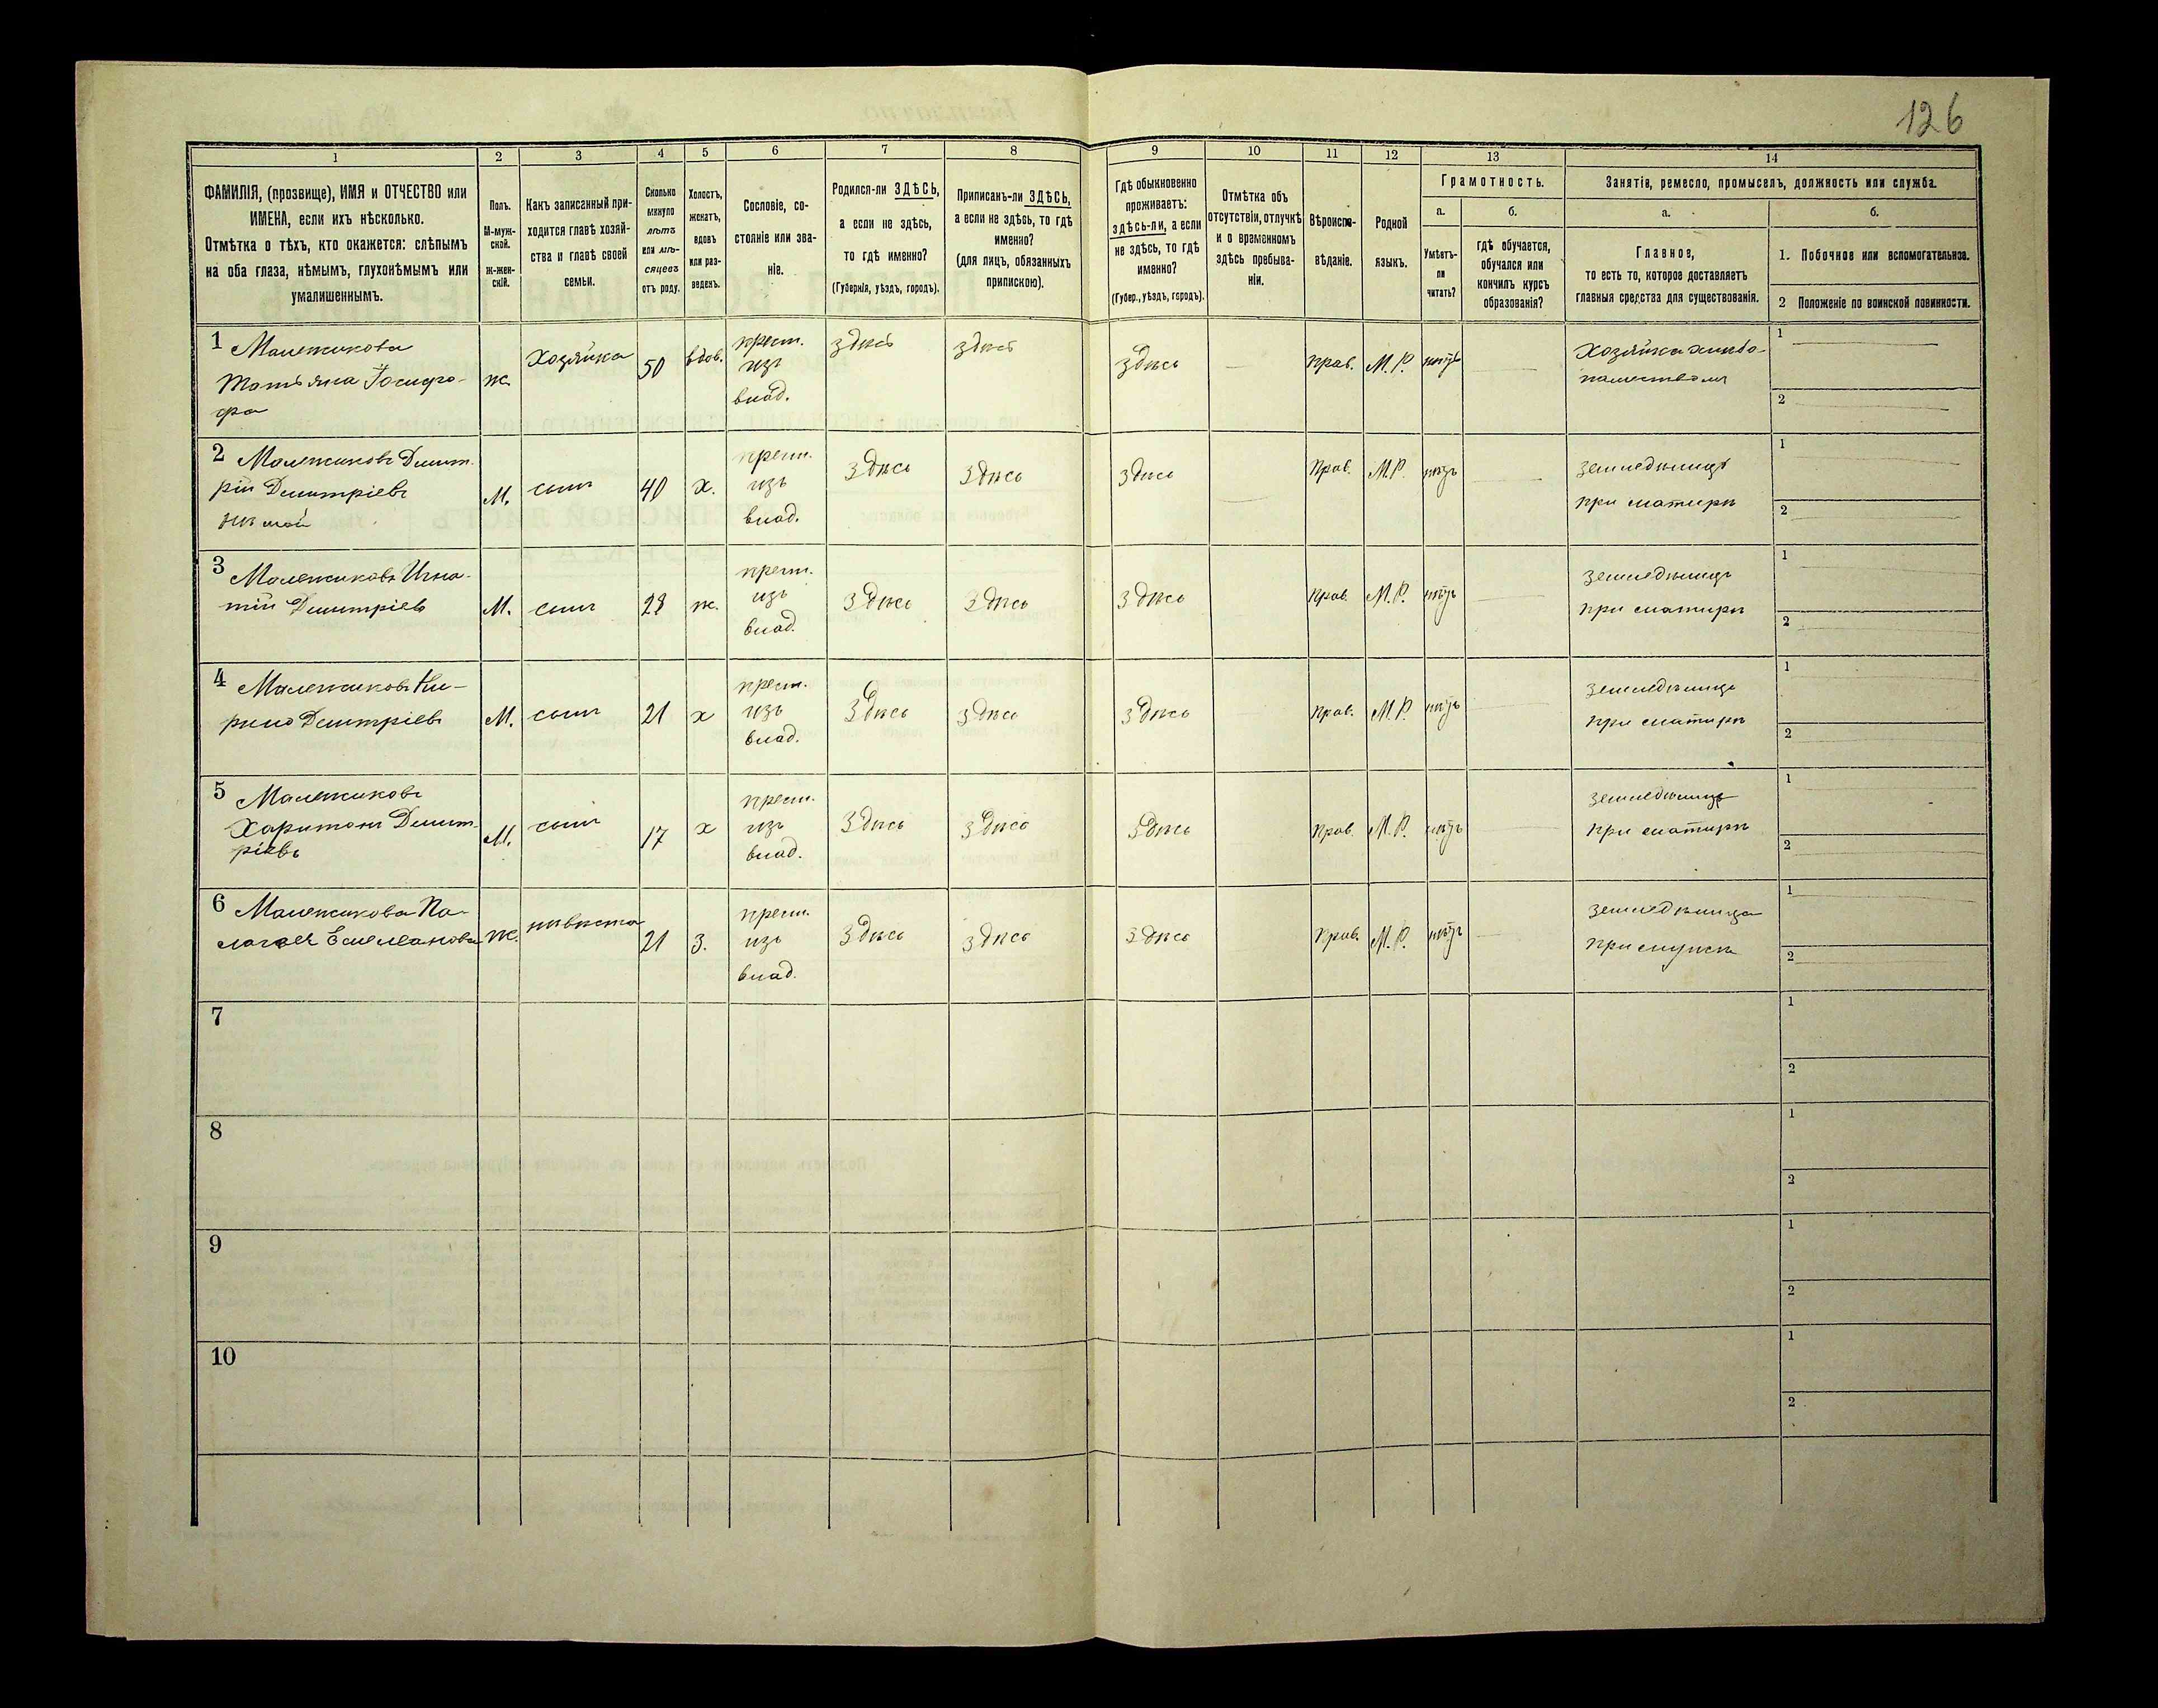 126
1 2 3 4 5 6 7 8 9 10 11 12 13 14
ФАМИЛІЯ, (прозвище), ИМЯ и ОТЧЕСТВО или
ИМЕНА, если ихъ нѣсколько.
Отмѣтка о тѣхъ, кто окажется: слѣпымъ
на оба глаза, нѣмымъ, глухонѣмымъ или
умалишеннымъ.
Полъ.
М-муж-
ской.
Ж-жен-
скій.
Какъ записанный при-
ходится главѣ хозяй-
ства и главѣ своей
семьи.
Сколько
минуло
лѣтъ
или мѣ-
сяцевъ
отъ роду.
Холостъ,
женатъ,
вдовъ
или раз-
веденъ.
Сословіе, со-
стояніе или зва-
ніе.
Родился-ли ЗДѢСЬ,
а если не здѣсь,
то гдѣ именно?
(Губернія, уѣздъ, городъ).
Приписанъ-ли ЗДѢСЬ,
а если не здѣсь, то гдѣ
именно?
(для лицъ, обязанныхъ
припискою).
Гдѣ обыкновенно
проживаетъ:
здѣсь-ли, а если
не здѣсь, то гдѣ
именно?
(Губер., уѣздъ, городъ).
Отмѣтка объ
отсутствіи, отлучкѣ
и о временномъ
здѣсь пребыва-
ніи.
Вѣроиспо-
вѣданіе.
Родной
языкъ.
Грамотность.
а.
Умѣетъ-
ли
читать?
б.
гдѣ обучается,
обучался или
кончилъ курсъ
образованія?
Занятіе, ремесло, промыселъ, должность или служба.
а.
Главное,
то есть то, которое доставляетъ
главныя средства для существованія.
б.
1. Побочное или вспомогательное.
2 Положеніе по воинской повинности.
1 Малежикова
Татьяна Іосифо-
ж. Хозяйка 50 вдов. крест. изъ влад. здѣсь здѣсь здѣсь прав. М.Р. нѣтъ Хозяйка хлѣбо-
пашествомъ
1
2
2 Малежиковъ Дмит-
рій Дмитріевъ
нѣмой
М. сынъ 40 х. крест. изъ влад. здѣсь здѣсь здѣсь Прав. М.Р. нѣтъ
при матери
1
2
3 Малежиковъ Игна-
тій Дмитріевъ
М. сынъ 28 ж. крест. изъ влад. здѣсь здѣсь здѣсь прав. М.Р. нѣтъ
при матери
1
2
4 Малежиковъ Ки-
рило Дмитріевъ
М. сынъ 21 х крест. изъ влад. здѣсь здѣсь здѣсь прав. М.Р. нѣтъ
при матери
1
2
5 Малежиковъ
Харитонъ Дмит-
ріевъ
М. сынъ 17 х крест. изъ влад. здѣсь здѣсь здѣсь прав. М.Р. нѣтъ
при матери
1
2
6 Малежикова Па-
лагея Емельянова
ж. нивѣста 21 З. крест. изъ влад. здѣсь здѣсь здѣсь прав. М.Р. нѣтъ
при мужѣ
1
2
7
1
2
8
1
2
9
1
2
10
1
2